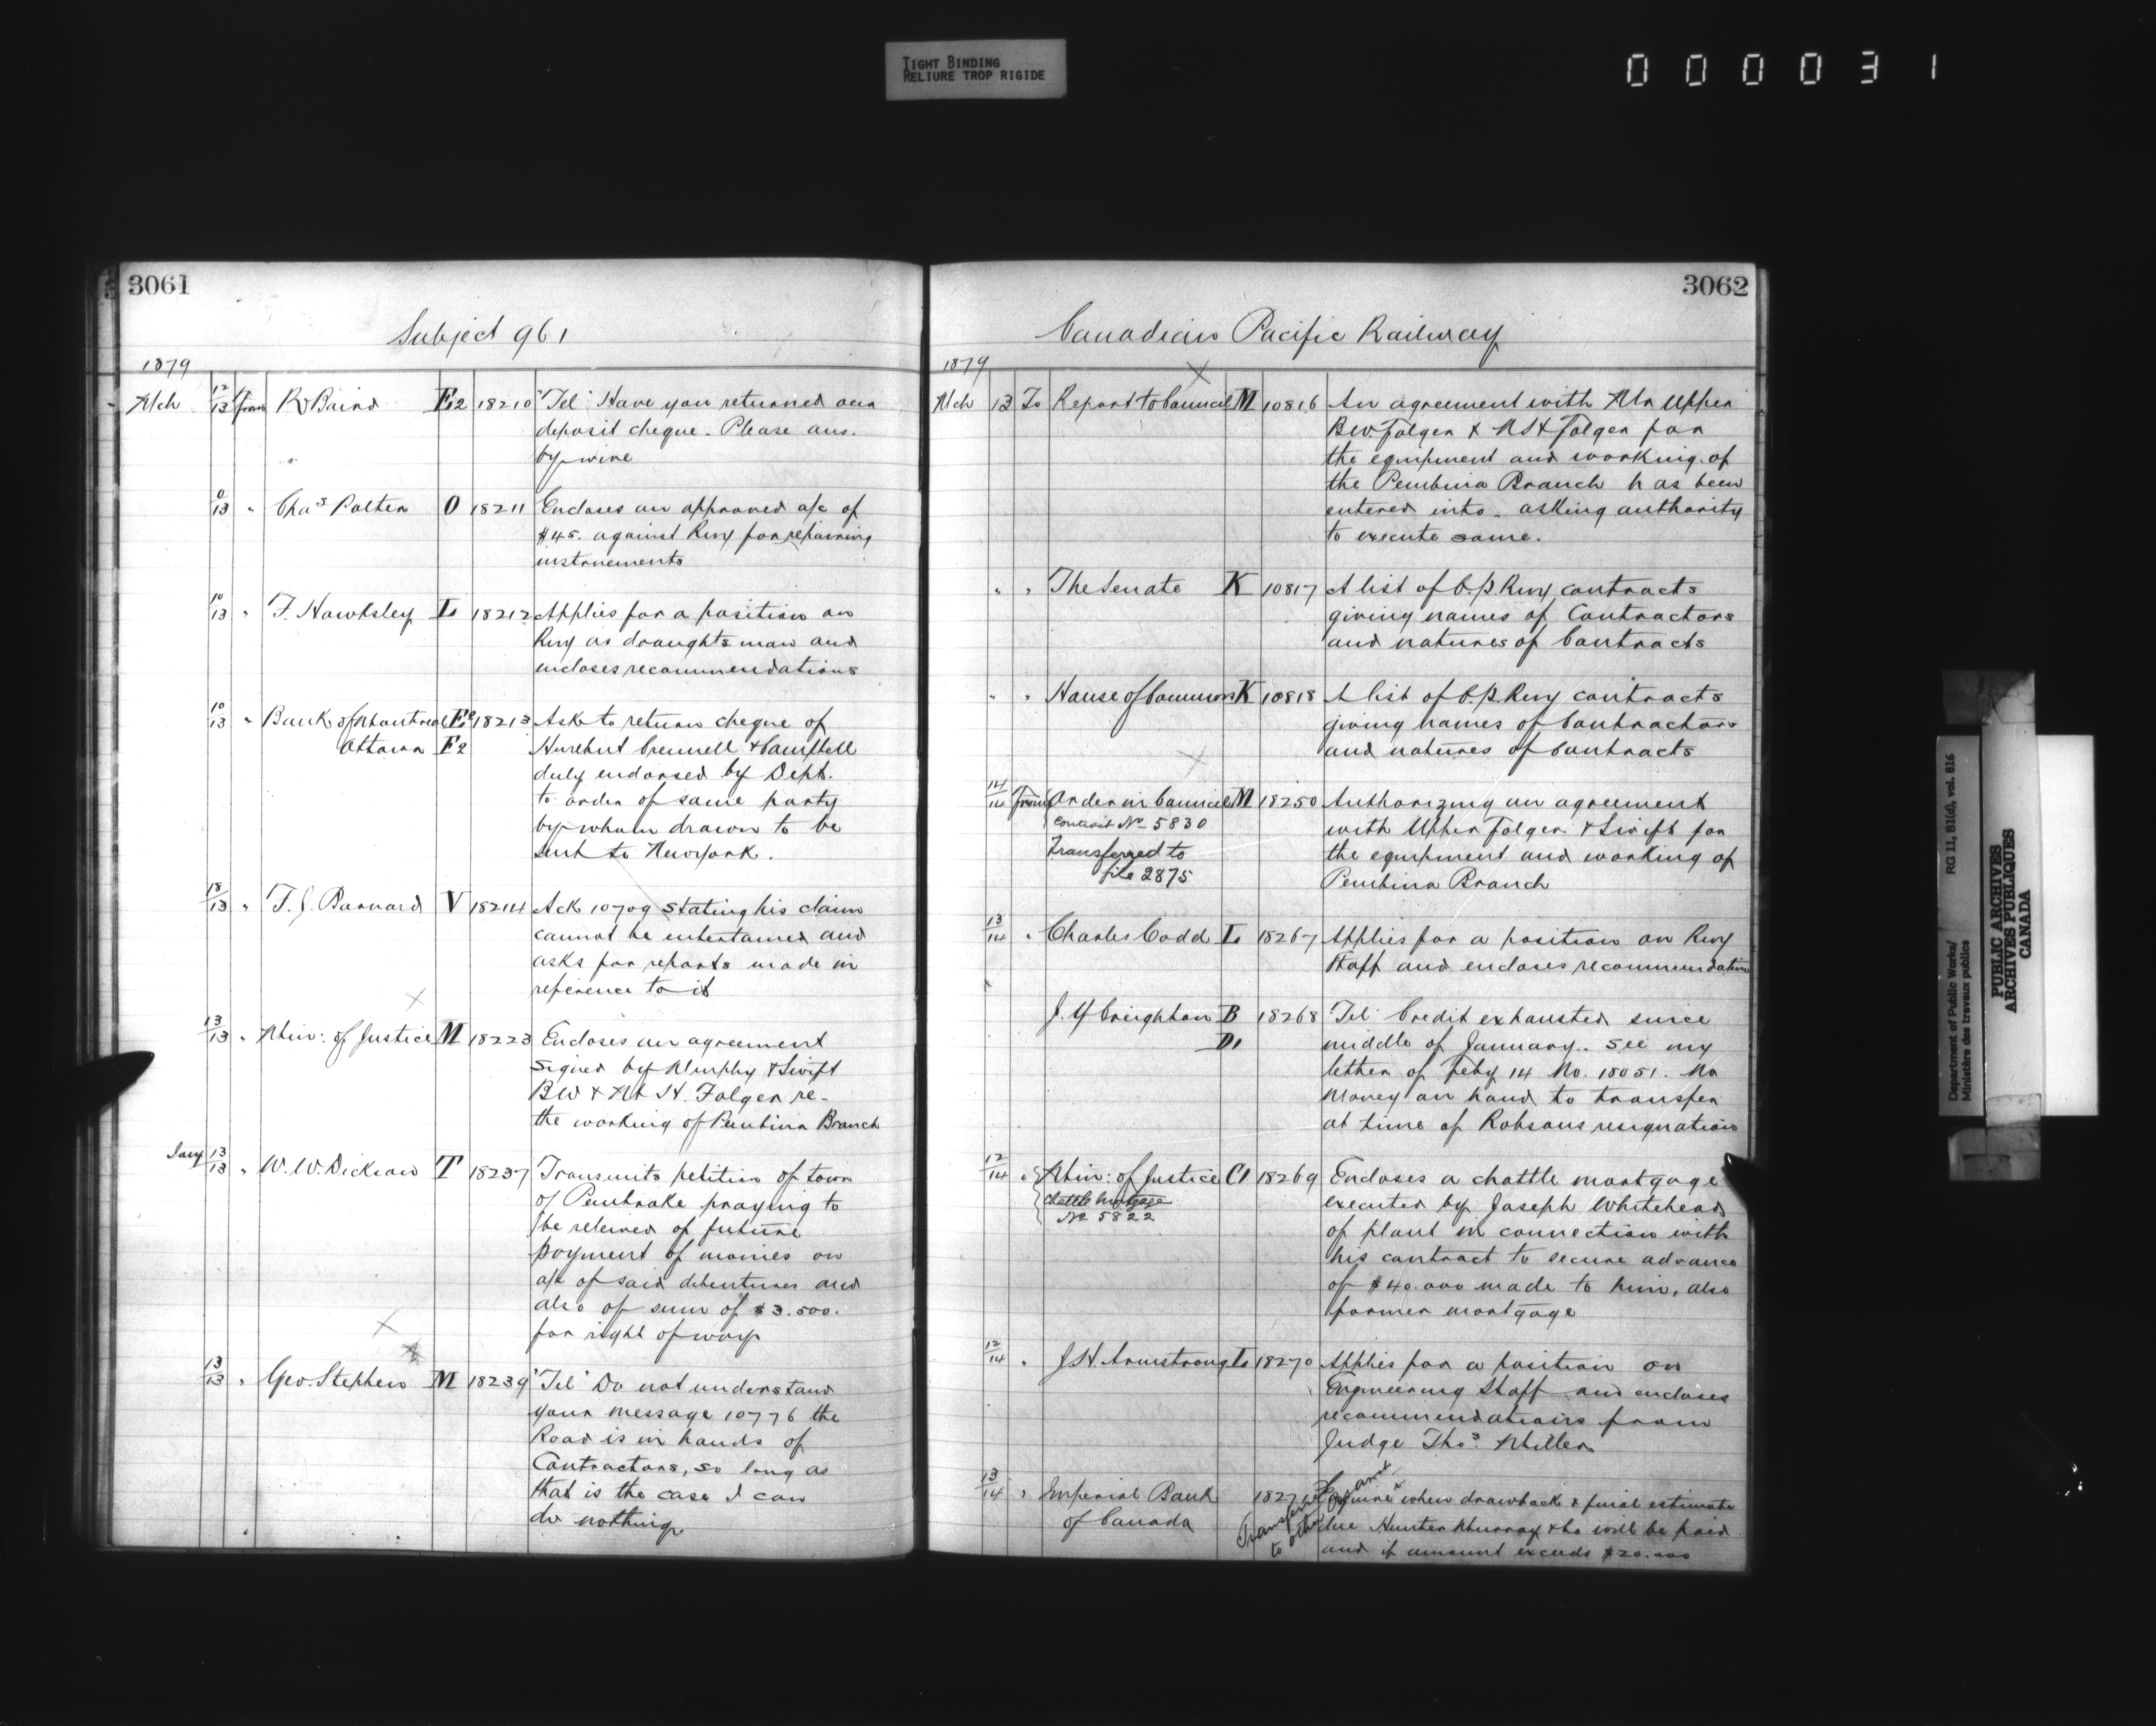 TIGHT BINDING
RELIURE TROP RIGIDE
000031
3061
Subject 961
1879
Mch 12/13 from R Baird E2 18210 "Tel" Have you returned our
deposit cheque. Please ans.
by wire
/13 " Chas Potter O 18211 Encloses an approved a/c of
$45. against Rwy for repairing
instruments
10/13 " F. Hawksley L 18212 Applies for a position on
Rwy as draughtsman and
encloses recommendations
10/13 " Bank of Montreal E2 18213 Ask to return cheque of
Ottawa F2 & Campbell
duly endorsed by Dept.
to order of same party
by whom drawn to be
sent to Newyork.
18/13 " F. J. Barnard V 18214 Ack 10709 stating his claim
cannot be entertained and
asks for reports made in
reference to it
13/13 " Min: of Justice M 18223 Encloses an agreement
signed by Murphy & Swift
BW & H. Folger re-
the working of Pembina Branch
Jany 13/13 " W. W. Dickson T 18237 Transmits petition of town
of Pembroke praying to
be relieved of future
payment of monies on
a/c of said debentures and
also of sum of $3.500.
for right of way
13/13 " Geo. Stephen M 18239 "Tel" Do not understand
your message 10776 the
Road is in hands of
Contractors, so long as
that is the case I can
do nothing
3062
Canadian Pacific Railway
1879
Mch 13 To Report to Council M 10816 An agreement with Mr Upper
B.W. Folger & M H Folger for
the equipment and working of
the Pembina Branch has been
entered into. asking authority
to execute same.
" " The Senate K 10817 A list of C.P. Rwy contracts
giving names of Contractors
and natures of Contracts
" " House of Commons K 10818 A list of C.P. Rwy contracts
giving names of Contractors
and natures of Contracts
14/14 from Order in Council M 18250 Authorizing an agreement
Contract No 5830
with Upper Folger & Swift for
Transferred to
the equipment and working of
file 2875
Pembina Branch
13/14 " Charles Codd L 18267 Applies for a position on Rwy
Staff and encloses recommendation
J. Y Creighton B 18268 "Tel" Credit exhausted since
D1 middle of January. See my
letter of Feby 14 No. 18051. No
money on hand to transfer
at time of Robsons resignation
12/14 " Min: of Justice C1 18269 Encloses a chattle mortgage
Chattle Mortgage
No 5822
executed by Joseph Whitehead
of plant in connection with
his contract to secure advance
of $40.000 made to him, also
former mortgage
12/14 " J.H. Armstrong L 18270 Applies for a position on
Engineering Staff and encloses
recommendations from
Judge Thos. Miller
13/14 " Imperial Bank 1827 Enquires when drawback & final estimate
of Canada due Hunter Murray & Co will be paid
and if amount exceeds $20.000
Transferred
to other
Department of Public Works/
Ministère des travaux publics
RG 11, B1(d), vol. 816
PUBLIC ARCHIVES
ARCHIVES PUBLIQUES
CANADA